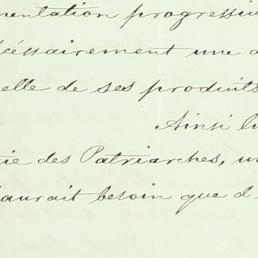 mentation progressive
cessairement une
elle de ses produits
Ainsi
ie des Patriarches, un
aurait besoin que d